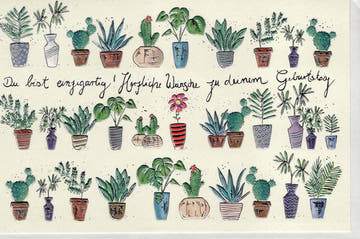 Du bist einzigartig! Herzliche Wünsche zu deinem Geburtstag